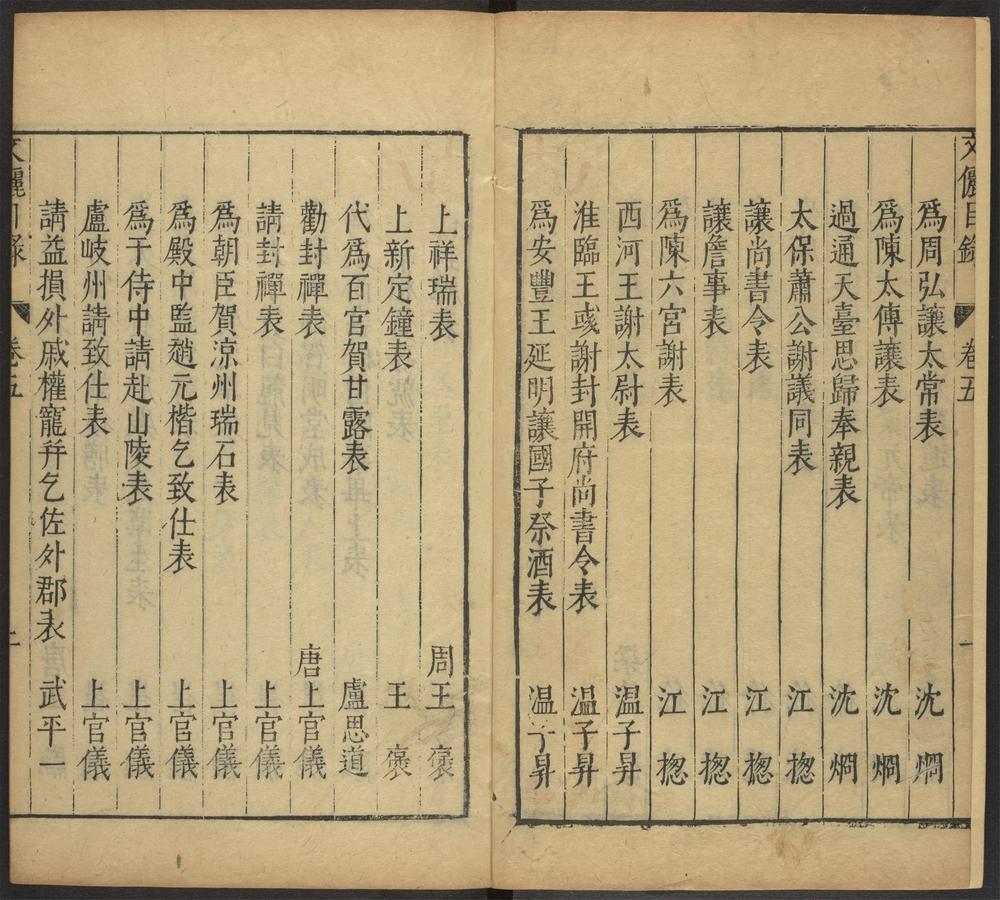 文儷目錄 卷五 一
爲周弘讓太常表 沈炯
爲陳太傅讓表 沈炯
過通天臺思歸奉親表 沈炯
太保蕭公謝議同表 江揔
讓尚書令表 江揔
讓詹事表 江揔
爲陳六宮謝表 江揔
西河王謝太尉表 温子昇
淮臨王彧謝封開府尚書令表 温子昇
爲安豐王延明讓國子祭酒表 温子昇
上祥瑞表 周王褒
上新定鐘表 王褒
代爲百官賀甘露表 盧思道
勸封禪表 唐上官儀
請封禪表 上官儀
爲朝臣賀涼州瑞石表 上官儀
爲殿中監趙元楷乞致仕表 上官儀
爲于侍中請赴山陵表 上官儀
盧岐州請致仕表 上官儀
請益損外戚權寵幷乞佐外郡表 武平一
文儷目錄 卷五